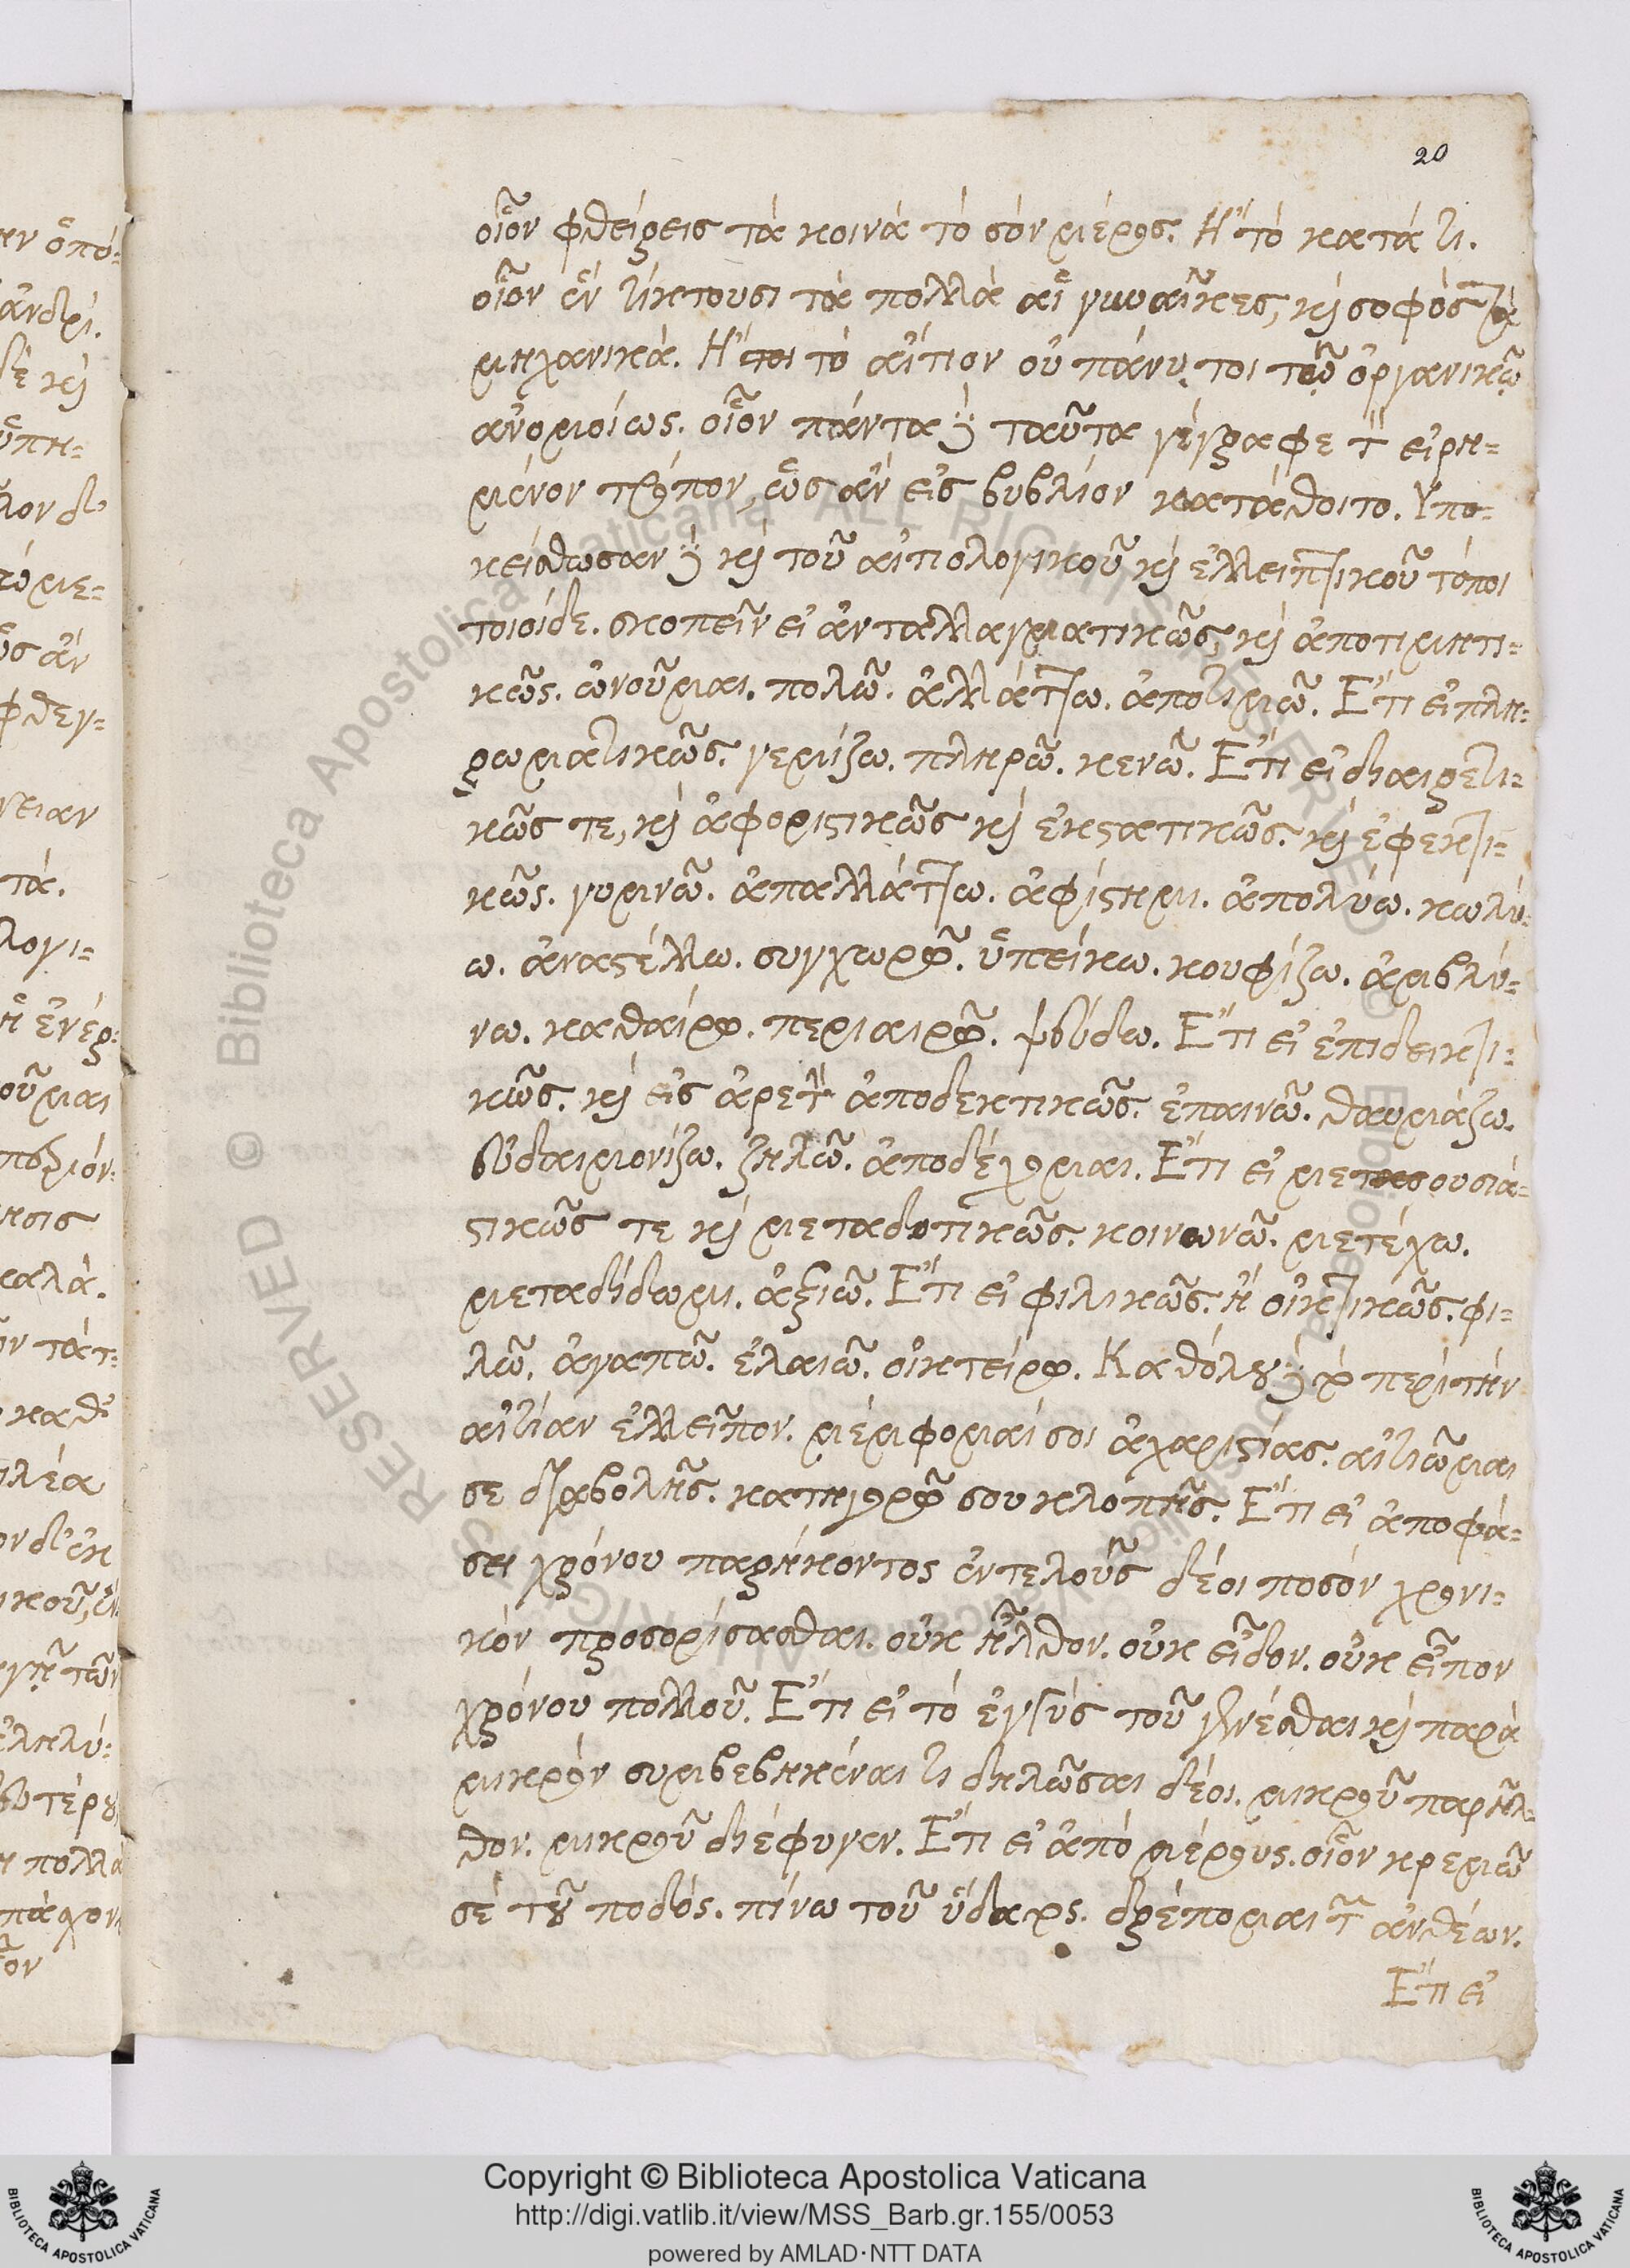 20
οἷον φθείρεις τὰ κοινὰ τὸ σὸν μέρος. Ἢ τὸ κατά τι.
οἷον ἓν τίκτουσι τὰ πολλὰ αἱ γυναῖκες, καὶ σοφὸς τὰ
μηχανικά. Ἤτοι τὸ αἴτιον οὐ πάνυ τοι τῷ ὀργανικῷ
ἀνομοίως. οἷον πάντα δὲ ταῦτα γέγραφε τὸν εἰρη=
μένον τρόπον, ὡς ἂν εἰς βυβλίον κατάθοιτο. Ὑπο=
κείσθωσαν δὲ καὶ τοῦ αἰτιολογικοῦ καὶ ἐλλειπτικοῦ τόποι
τοιοίδε. σκοπεῖν εἰ ἀνταλλαγματικῶς, καὶ ἀποτιμητι=
κῶς. ὠνοῦμαι. πολῶ. ἀλλάττω. ἀποτιμῶ. Ἔτι εἰ πλη=
ρωματικῶς. γεμίζω. πληρῶ. κενῶ. Ἔτι εἰ διαιρετι=
κῶς τε, καὶ ἀφοριστικῶς καὶ ἐκστατικῶς. καὶ ἐφεκτι=
κῶς. γυμνῶ. ἀπαλλάττω. ἀφίστημι. ἀπολύω. κωλύ=
ω. ἀναστέλλω. συγχωρῶ. ὑπείκω. κουφίζω. ἀμβλύ=
νω. καθαίρω. περιαιρῶ. ψεύδω. Ἔτι εἰ ἐπιδεικτι=
κῶς. καὶ εἰς ἀρετὴν ἀποδεκτικῶς. ἐπαινῶ. θαυμάζω.
εὐδαιμονίζω. ζηλῶ. ἀποδέχομαι. Ἔτι εἰ μετουσια=
στικῶς τε καὶ μεταδοτικῶς. κοινωνῶ. μετέχω.
μεταδίδωμι. ἀξιῶ. Ἔτι εἰ φιλικῶς. ἢ οἰκτικῶς. φι=
λῶ. ἀγαπῶ. ἐλαιῶ. οἰκτείρω. Καθόλου δὲ περὶ τὴν
αἰτίαν ἐλλεῖπον. μέμφομαί σοι ἀχαριστίας. αἰτιῶμαι
σε διαβολῆς. κατηγορῶ σου κλοπῆς. Ἔτι εἰ ἀποφά=
σει χρόνου παρήκοντος ἐντελοῦς δέοι ποσὸν χρονι=
κὸν προσορίσασθαι. οὐκ ἦλθον. οὐκ εἶδον. οὐκ εἶπον
χρόνου πολλοῦ. Ἔτι εἰ τὸ ἐγγὺς τοῦ γενέσθαι καὶ παρὰ
μικρὸν συμβεβηκέναι τι δηλῶσαι δέοι. μικροῦ παρῆλ=
θον. μικροῦ διέφυγεν. Ἔτι εἰ ἀπὸ μέρους. οἷον κρεμῶ
σὲ τοῦ ποδός. πίνω τοῦ ὕδατος. δρέπομαι τῶν ἀνθέων.
Ἔτι εἰ
Copyright © Biblioteca Apostolica Vaticana
http://digi.vatlib.it/view/MSS_Barb.gr.155/0053
powered by AMLAD·NTT DATA